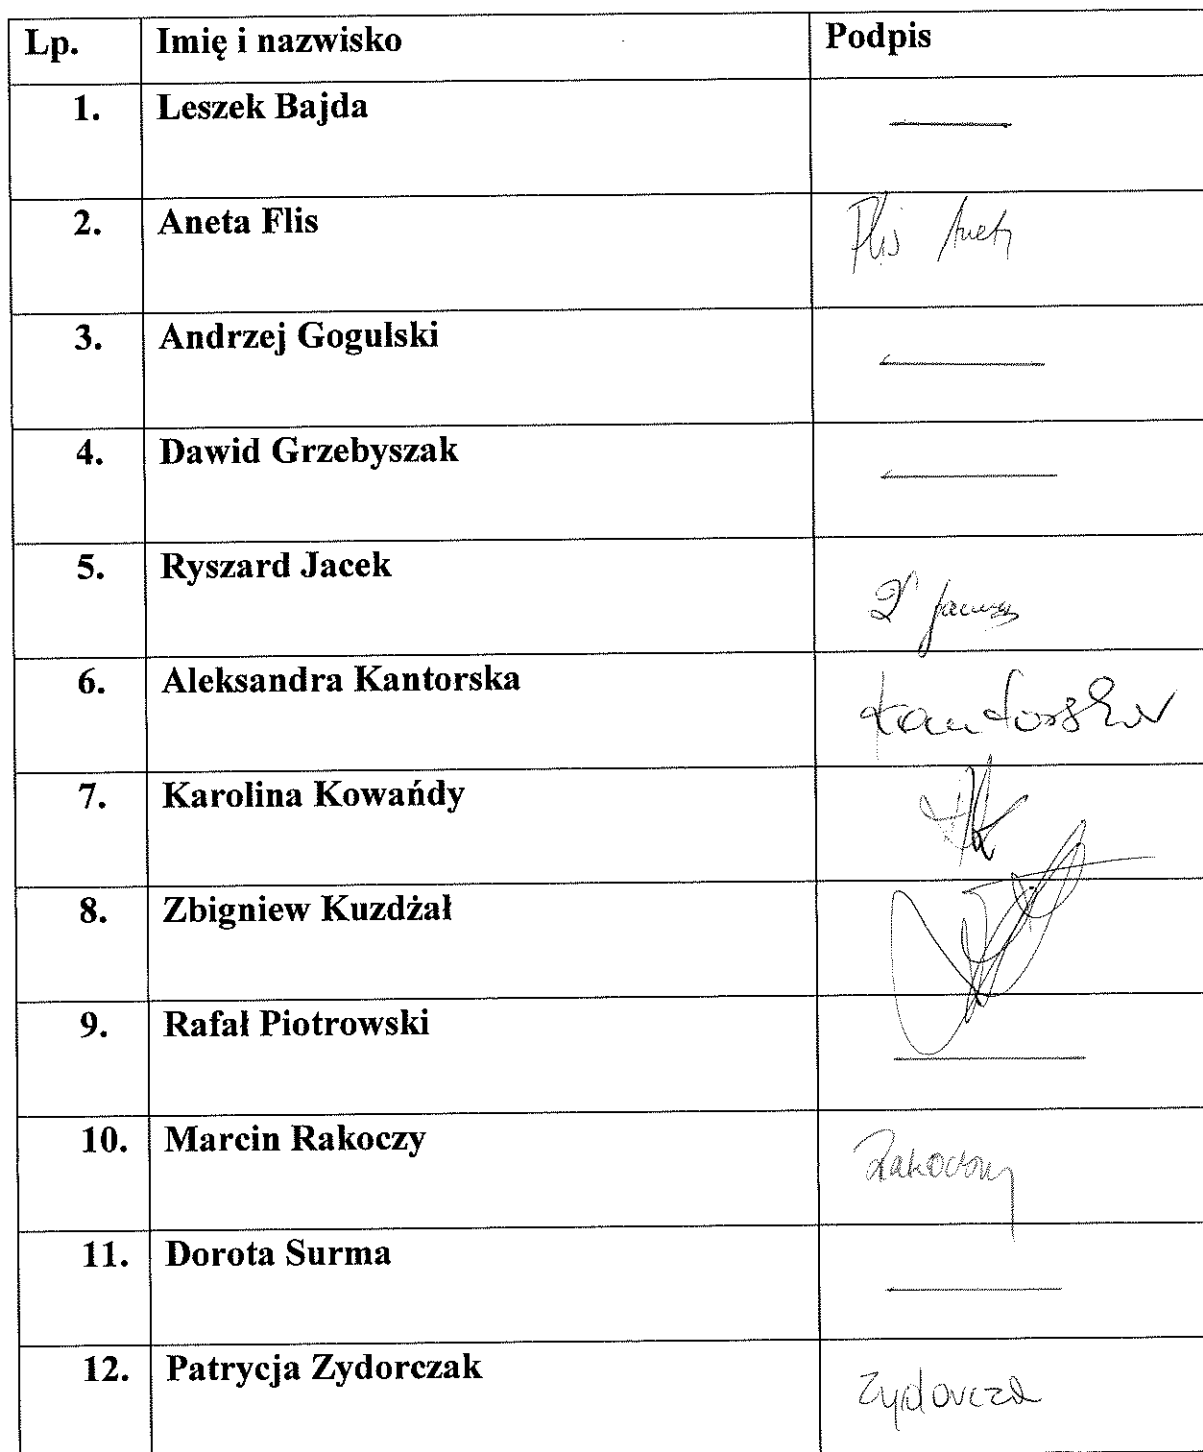 Lp. Imię i nazwisko Podpis
1. Leszek Bajda
2. Aneta Flis Flis Aneta
3. Andrzej Gogulski
4. Dawid Grzebyszak
5. Ryszard Jacek
6. Aleksandra Kantorska Kantorska
7. Karolina Kowańdy
8. Zbigniew Kuzdżał
9. Rafał Piotrowski
10. Marcin Rakoczy Rakoczy
11. Dorota Surma
12. Patrycja Zydorczak